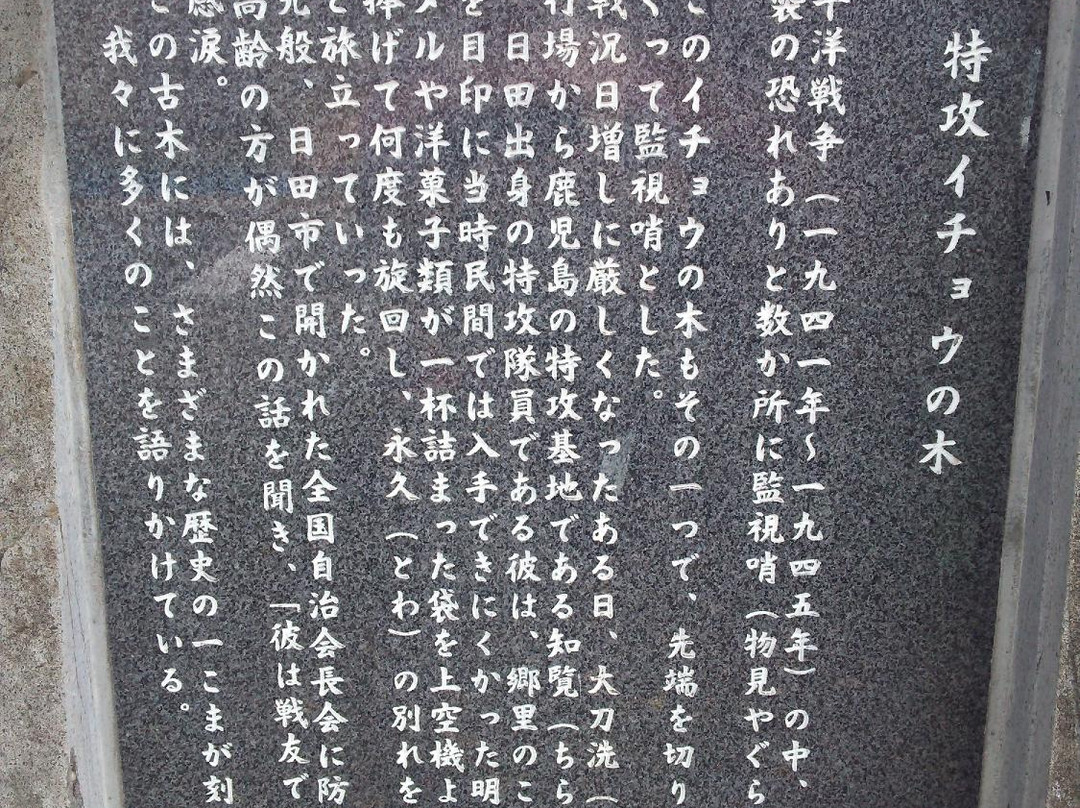 特攻イチョウの木
平洋戦争（一九四一年～一九四五年）の中、
襲の恐れありと数か所に監視哨（物見やぐら
このイチョウの木もその一つで、先端を切り
くって監視哨とした。
戦況日増しに厳しくなったある日、大刀洗（
行場から鹿児島の特攻基地である知覧（ちら
日田出身の特攻隊員である彼は、郷里のこ
を目印に当時民間では入手できにくかった明
メルや洋菓子類が一杯詰まった袋を上空機よ
捧げて何度も旋回し、永久（とわ）の別れを
と旅立っていった。
先般、日田市で開かれた全国自治会長会に防
高齢の方が偶然この話を聞き、「彼は戦友で
感涙。
この古木には、さまざまな歴史の一こまが刻
我々に多くのことを語りかけている。